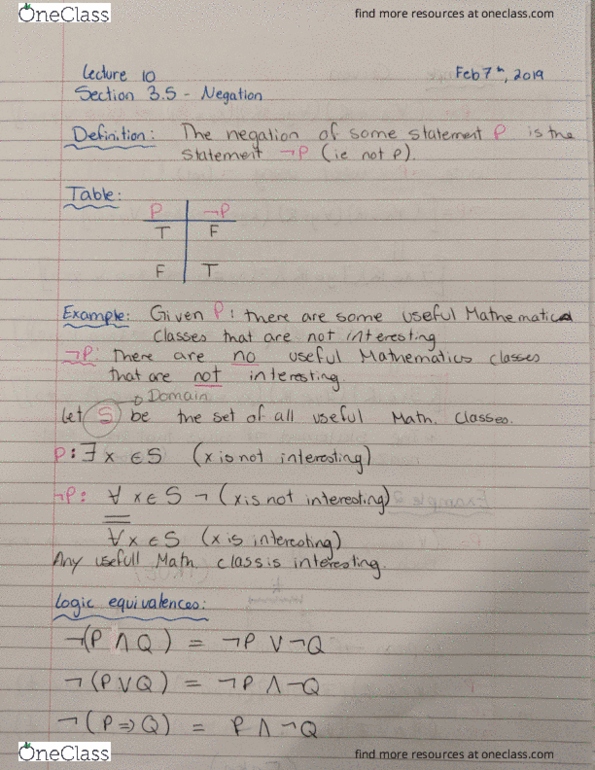 OneClass
find more resources at oneclass.com
Lecture 10
Feb 7th, 2019
Section 3.5 - Negation
Definition: The negation of some statement P is the
statement ¬P (ie not P).
Table:
P ¬P
T F
F T
Example: Given P: there are some useful Mathematics
classes that are not interesting
¬P: There are no useful Mathematics classes
that are not interesting.
Domain
Let S be the set of all useful Math. Classes.
P: ∃ x ∈ S (x is not interesting)
¬P: ∀ x ∈ S ¬ (x is not interesting)
∀ x ∈ S (x is interesting)
Any usefull Math class is interesting.
Logic equivalences:
¬(P ∧ Q) = ¬P ∨ ¬Q
¬(P ∨ Q) = ¬P ∧ ¬Q
¬(P ⇒ Q) = P ∧ ¬Q
OneClass
find more resources at oneclass.com